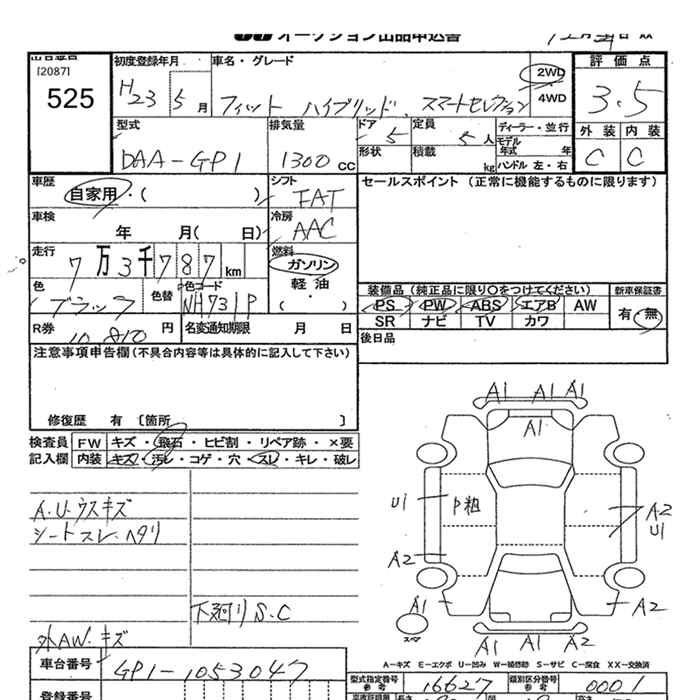 オークション出品申込書
[2087]
525
初度登録年月 車名・グレード 2WD 4WD 評価点
H23 5月 フィット ハイブリッド スマートセレクション 3.5
型式 排気量 ドア 定員 ディーラー・並行 外装 内装
DAA-GP1 1300cc 5 5人 モデル年式 年 C C
形状 積載 kg ハンドル 左・右
車歴 自家用・( ) シフト FAT セールスポイント (正常に機能するものに限ります)
車検 年 月( 日) 冷房 AAC
走行 7万3千787km 燃料 ガソリン 軽油 ( ・ )
色 ブラック 色替 色コード NH731P
装備品 (純正品に限り○をつけてください) 新車保証書
PS PW ABS エアB AW 有・無
SR ナビ TV カワ
R券 10,810円 名変通知期限 月 日
後日品
注意事項申告欄(不具合内容等は具体的に記入して下さい)
修復歴 有 〔箇所 〕
検査員 FW キズ・飛石・ヒビ割・リペア跡・×要
記入欄 内装 キズ・汚レ・コゲ・穴・スレ・キレ・破レ
A1 A1 A1
A1
A.U.ウスキズ
シートスレ.ヘタリ
U1 P粗 A2
U1
A2
下廻りS.C
A1 A2
スペア
外AW.キズ
A1 A1 A2
A-キズ E-エクボ U-凹み W-補修跡 S-サビ C-腐食 XX-交換済
車台番号 GP1-1053047
型式指定番号 参考 16627 類別区分番号 参考 0001
登録番号